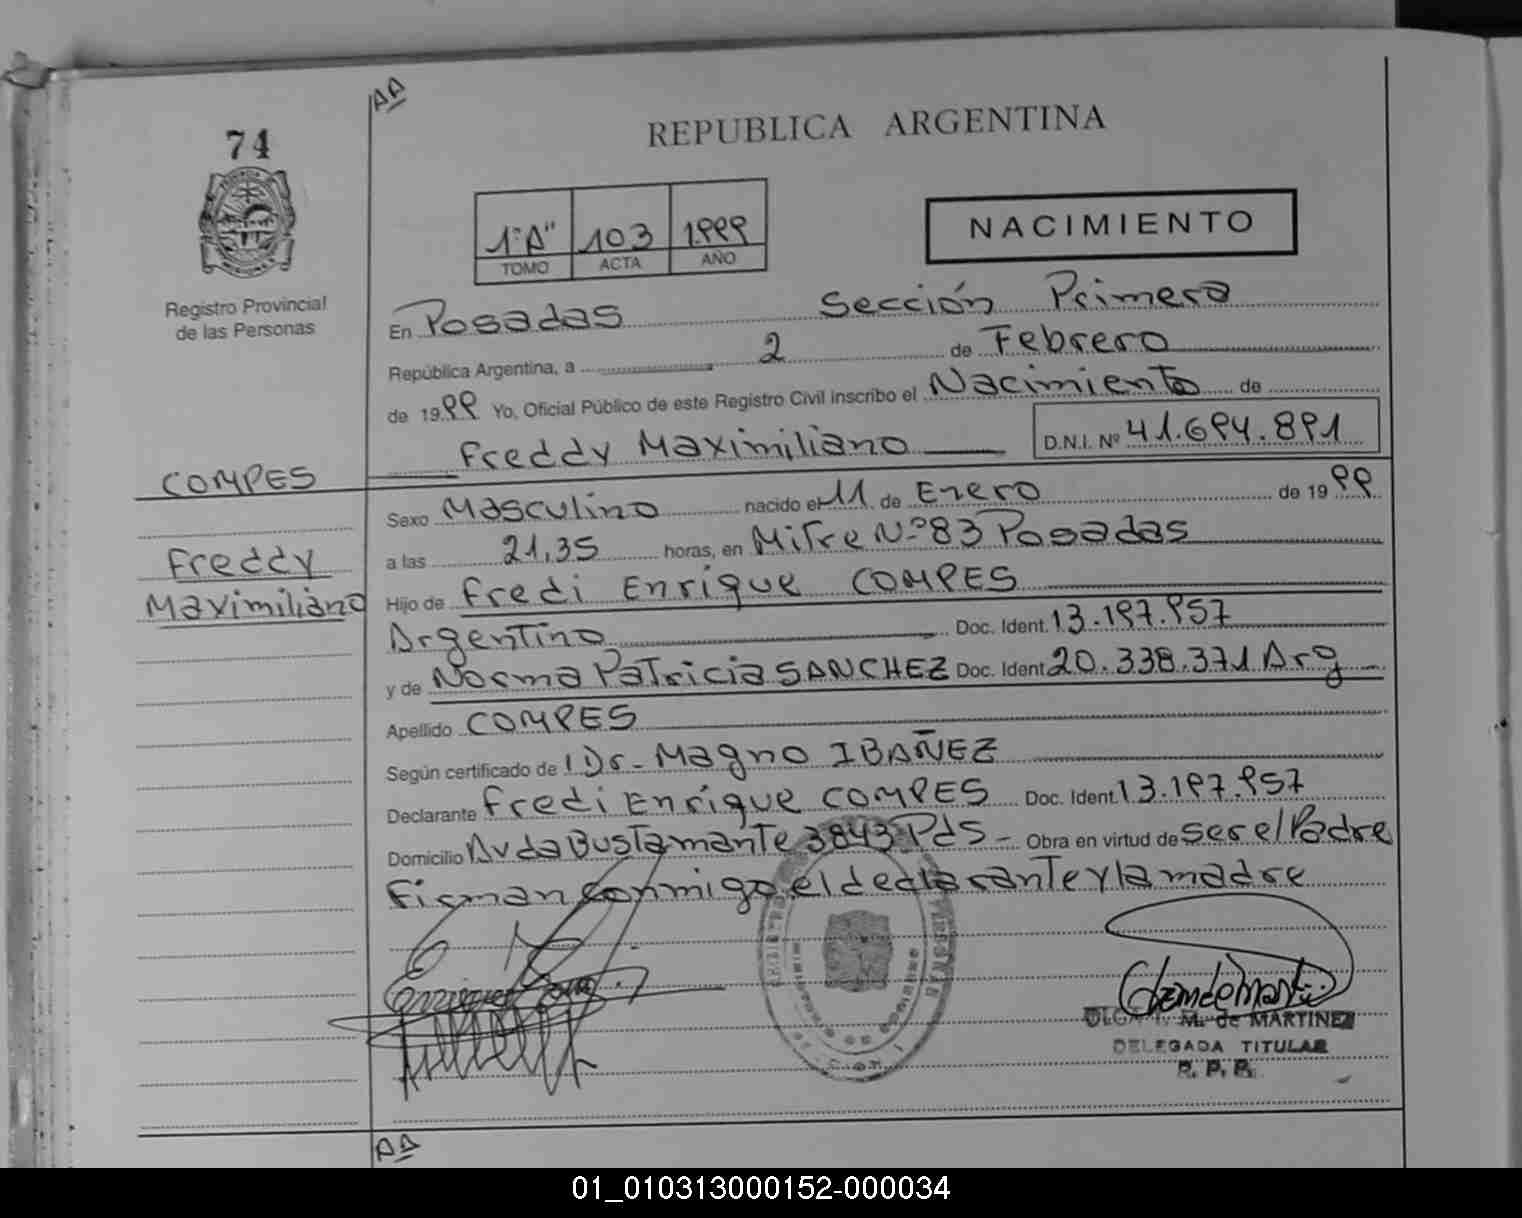 AA
74
REPUBLICA ARGENTINA
1º"A" 103 1.999
TOMO ACTA AÑO
NACIMIENTO
Registro Provincial
de las Personas
En Posadas Sección Primera
República Argentina, a 2 de Febrero
de 1999 Yo, Oficial Público de este Registro Civil inscribo el Nacimiento de
Freddy Maximiliano D.N.I. Nº 41.694.891
COMPES
Freddy
Maximiliano
Sexo Masculino nacido el 11 de Enero de 1999
a las 21,35 horas, en Mitre Nº 83 Posadas
Hijo de Fredi Enrique COMPES
Argentino Doc. Ident. 13.197.957
y de Norma Patricia SANCHEZ Doc. Ident 20.338.371 Arg
Apellido COMPES
Según certificado de Dr. Magno IBAÑEZ
Declarante Fredi Enrique COMPES Doc. Ident. 13.197.957
Domicilio Avda Bustamante 3843 Pds - Obra en virtud de ser el Padre
Firman conmigo el declarante y la madre
M. de MARTINEZ
DELEGADA TITULAR
R. P. P.
AA
01_010313000152-000034